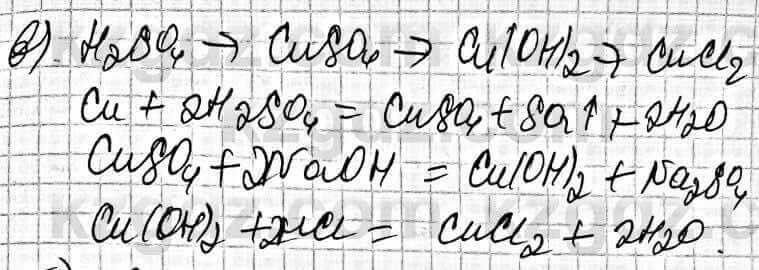 в). H₂SO₄ → CuSO₄ → Cu(OH)₂ → CuCl₂
Cu + 2H₂SO₄ = CuSO₄ + SO₂↑ + 2H₂O
CuSO₄ + 2NaOH = Cu(OH)₂ + Na₂SO₄
Cu(OH)₂ + 2HCl = CuCl₂ + 2H₂O.